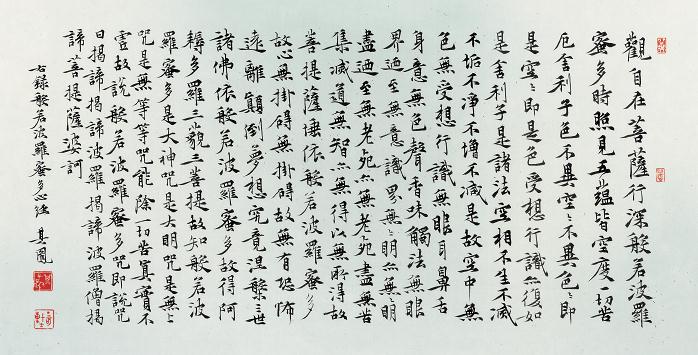 觀自在菩薩行深般若波羅
蜜多時照見五蘊皆空度一切苦
厄舍利子色不異空々不異色々即
是空々即是色受想行識亦復如
是舍利子是諸法空相不生不滅
不垢不淨不增不減是故空中無
色無受想行識無眼耳鼻舌
身意無色聲香味觸法無眼
界迺至無意識界無々明亦無明
盡迺至無老死亦無老死盡無苦
集滅道無智亦無得以無所得故
菩提薩埵依般若波羅蜜多
故心無掛碍無掛碍故無有恐怖
遠離顛倒夢想究竟涅槃三世
諸佛依般若波羅蜜多故得阿
耨多羅三藐三菩提故知般若波
羅蜜多是大神咒是大明咒是無上
咒是無等等咒能除一切苦真實不
虛故說般若波羅蜜多咒即說咒
曰揭諦揭諦波羅揭諦波羅僧揭
諦菩提薩婆訶
右錄般若波羅蜜多心經